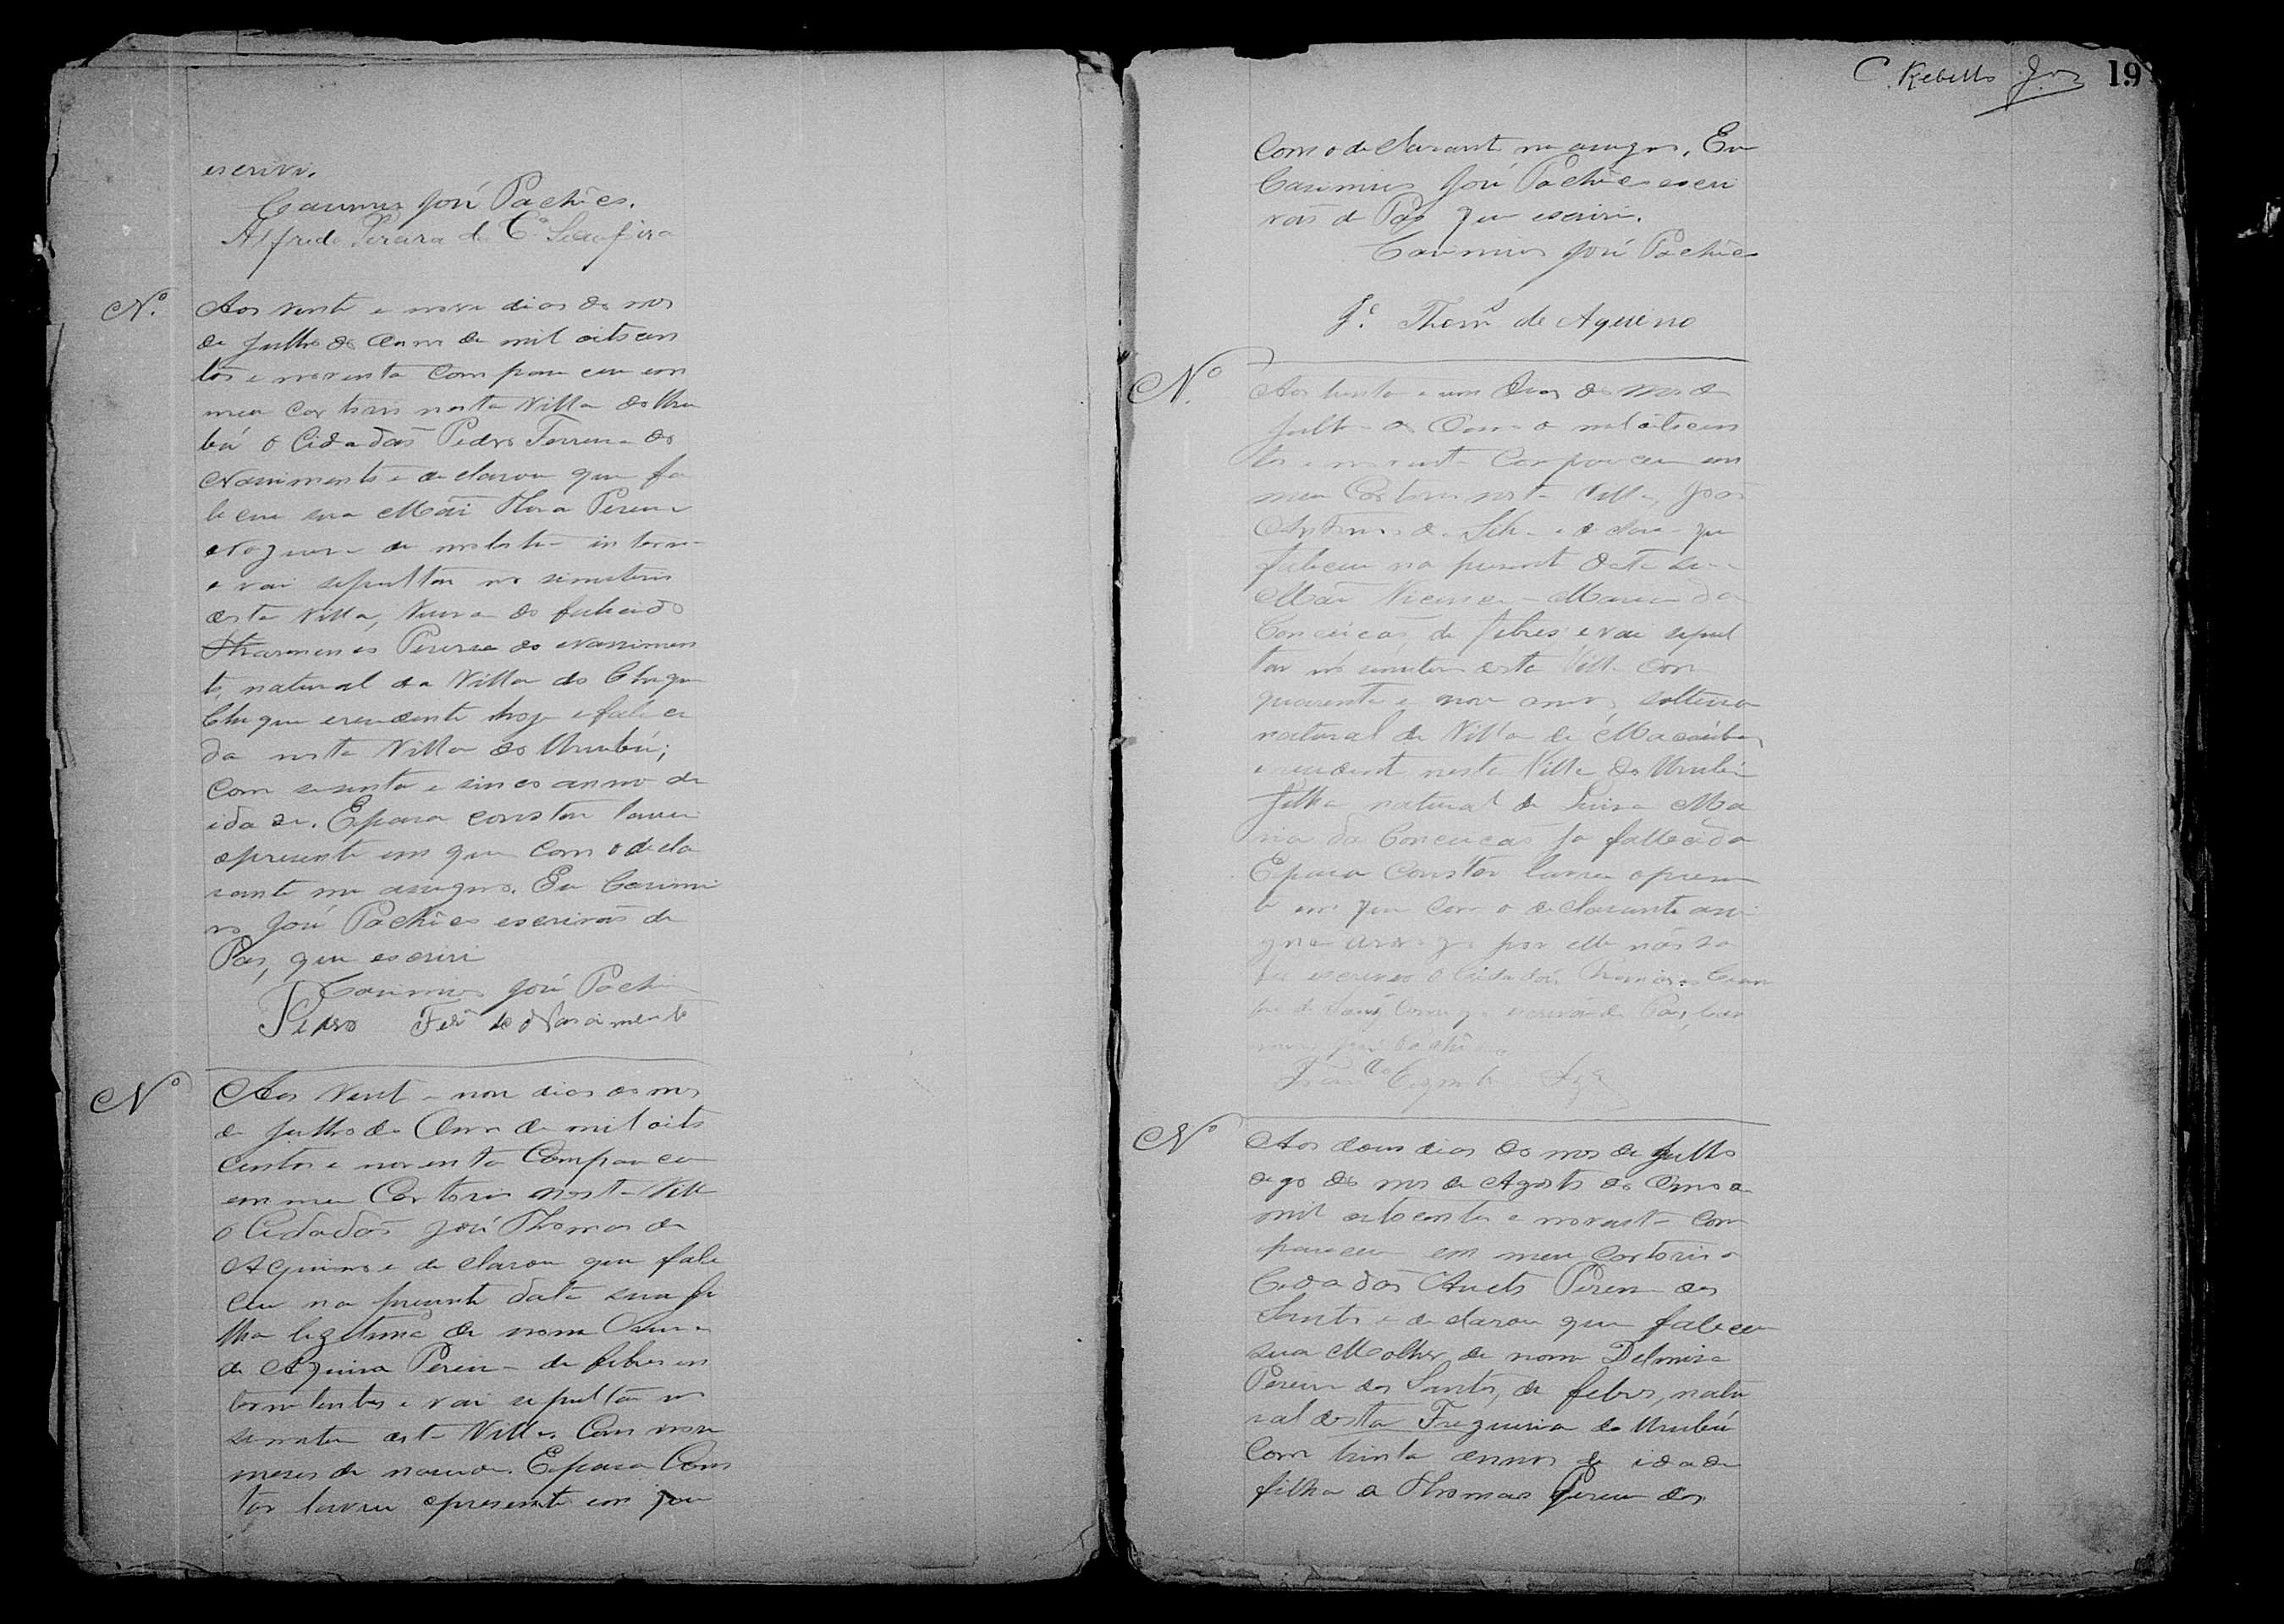 escrivi.
Casimiro José Pachêco.
Alfredo Pereira da Cª
Nº
Aos vinte e nove dias do mes
de Julho do Anno de mil oitocen
tos e noventa Compareceu em
meu Cartorio nesta Villa do Uru
bú o Cidadaõ Pedro Ferreira do
Nascimento e declarou que fa
leceu sua Mãi Pereira
de molestia interna
e vai sepultar no simiterio
desta Villa, Viuva do falecido
Pereira do Nascimen
to, natural da Villa do Chique
Chique e residente hoje e faleci
da nesta Villa do Urubú;
Com sesenta e sinco anno de
idade. E para constar lavrei
opresente em que Com o decla
rante me assigno. Eu Casimi
ro José Pachêco escrivaõ de
Pas, que escrivi
Casimiro José Pachêco
Pedro Ferª do Nascimento
Nº
Aos Vinte nove dias do mes
de Julho do Anno de mil oito
centos e noventa Compareceu
em meu Cartorio nesta Villa
o Cidadaõ José Thomas de
Aquino e declarou que fale
ceu na presente data sua fi
lha legitima de nome
de Aquino Pereira de febres in
termitentes e vai sepultar no
simiterio desta Villa. Com nove
meses de nascida. E para Cons
tar lavrei opresente em que
C. Rebello
19
Com o declarante me assigno. Eu
Casimiro José Pachêco escri
vaõ de Pas que escrivi.
Casimiro José Pachêco
Jº. Thomˢ de Aquino
Nº
Aos trinta e um dias do mes de
Julho do Anno de mil oitocen
tos e noventa Compareceu em
meu Cartorio nesta Villa, Joaõ
Antonio da Silva e declarou que
faleceu na presente data sua
Mãi Maria da
Conceicaõ, de febres e vai sepul
tar no simiterio desta Villa com
quarenta e nove annos, solteira
natural da Villa de Macaúbas
e residente nesta Villa do Urubú
filha natural de Luisa Ma
ria da Conceicaõ ja fallecida
E para Constar lavrei opresen
te em que Com o declarante assi
gna arogo por elle naõ sa
ber escrever o Cidadaõ
escrivaõ de Pas, Casi
miro José Pachêco
Nº
Aos dous dias do mes de Julho
digo do mes de Agosto do Anno de
mil oitocentos e noventa Com
pareceu em meu Cartorio o
Cidadaõ Pereira dos
Santos e declarou que faleceu
sua Molher de nome Delmira
Pereira dos Santos, de febres, natu
ral desta Freguesia do Urubú
Com trinta annos de idade
filha de Thomas Pereira dos